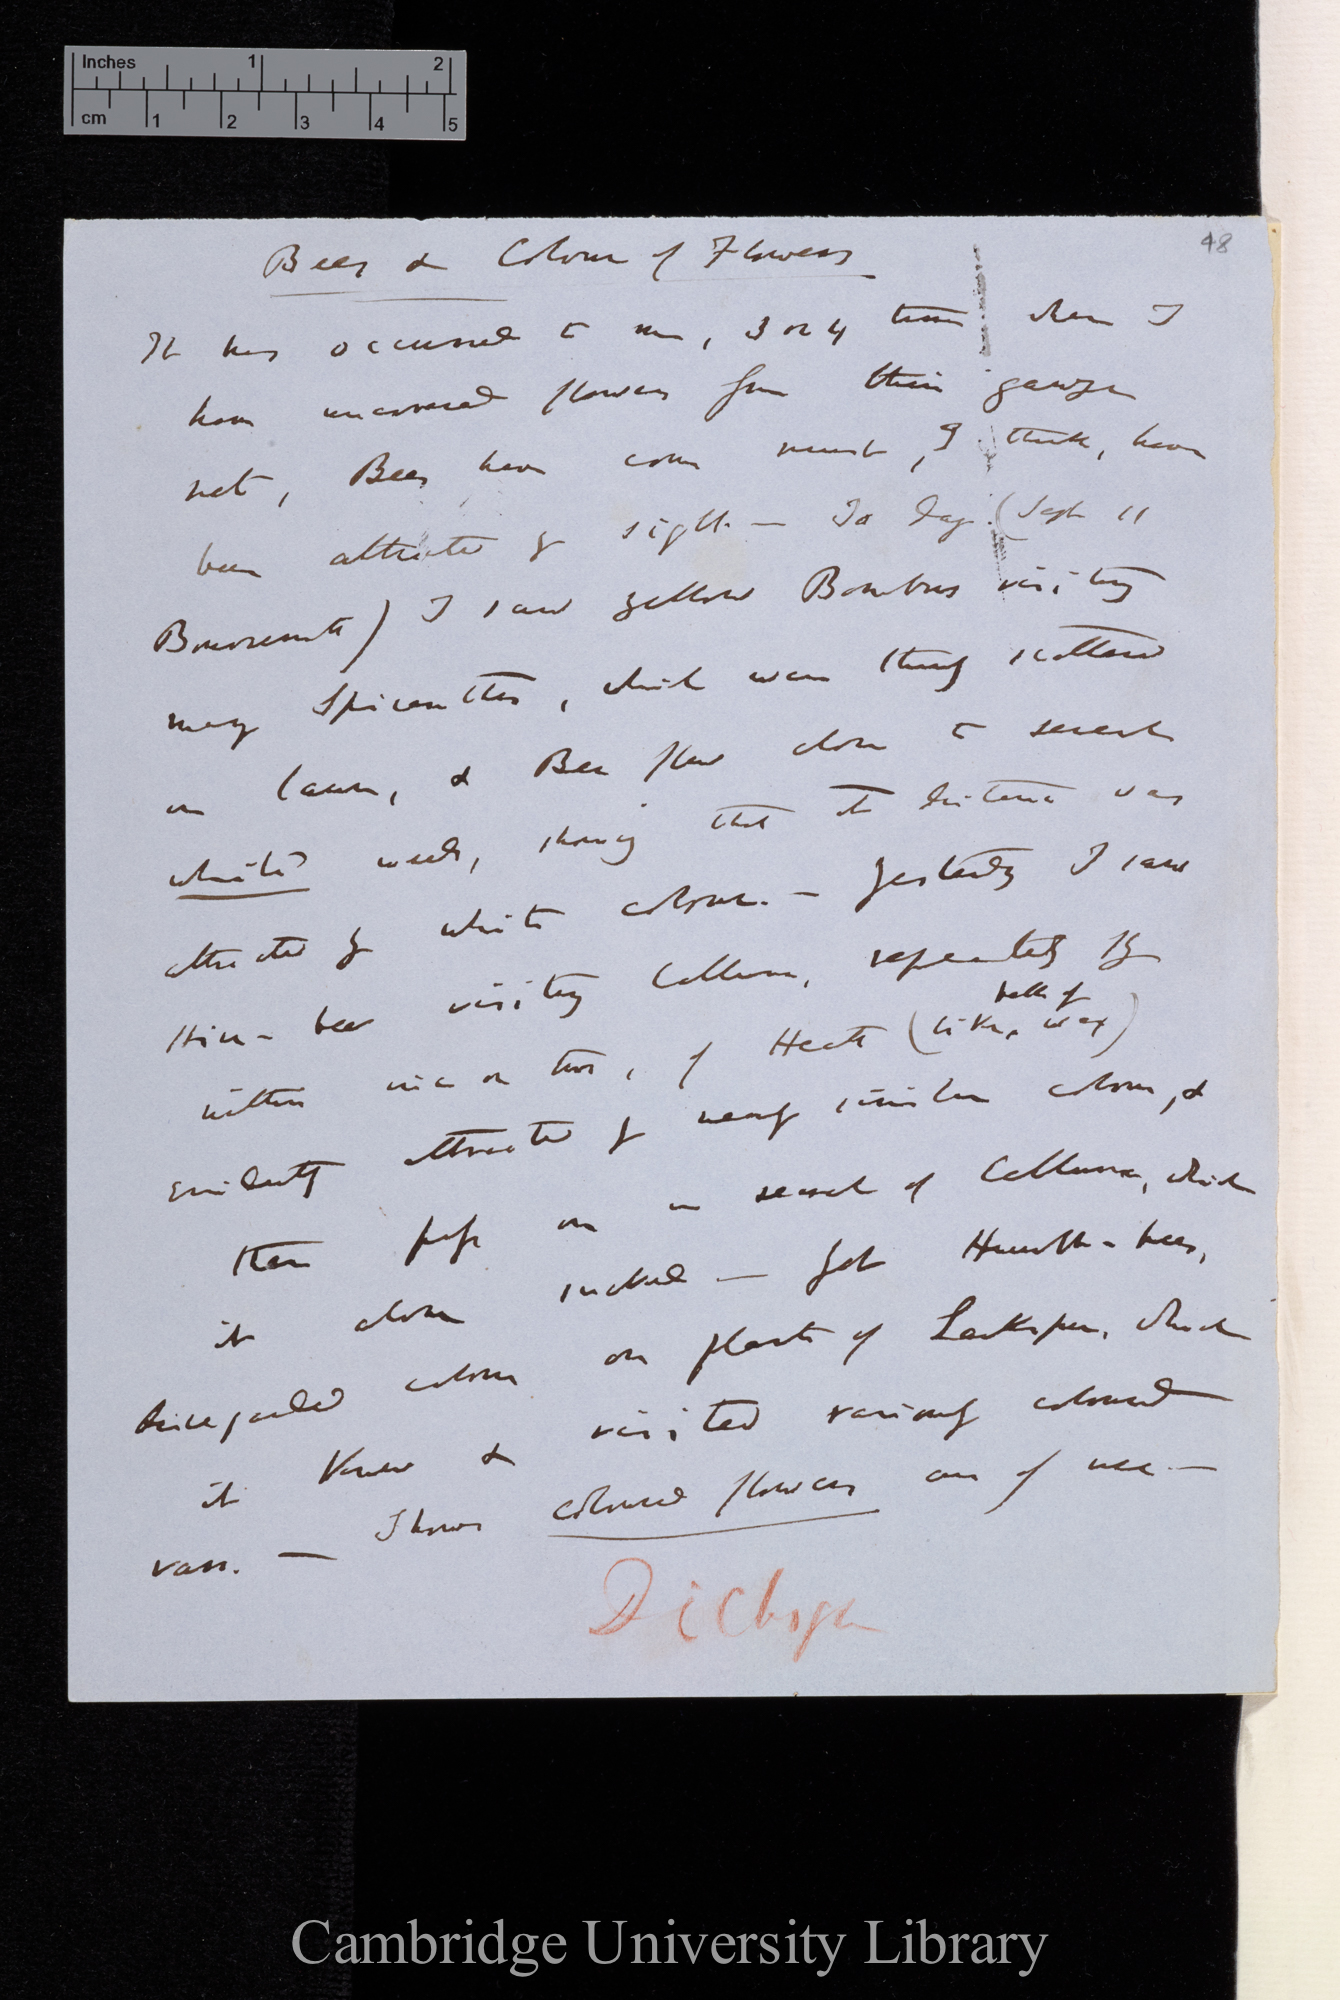 Inches 1 2
cm 1 2 3 4 5
48
Bees & Colour of Flowers
It has occurred to me, 3 or 4 times when I
have uncovered flowers from their gauze
net, Bees have come must, I think, have
been attracted by sight. — To day (Sept 11
Bournemouth) I saw yellow Bombus visiting
many Spiranthes, which were thinly scattered
on lawn, & Bee flew close to several
white weeds, showing that at distance was
attracted by white colour. — Yesterday I saw
Hive-bees visiting Calluna, repeatedly fly
balls of
within inch or two, of Heath (like wax)
evidently attracted by nearly similar colour, &
then pass on in search of Calluna, which
it alone sucked — Yet Humble-bees,
disregarded colour on plants of Larkspur, which
it knew & visited variously coloured
vars. — Shows coloured flowers are of use —
Dichogam
Cambridge University Library